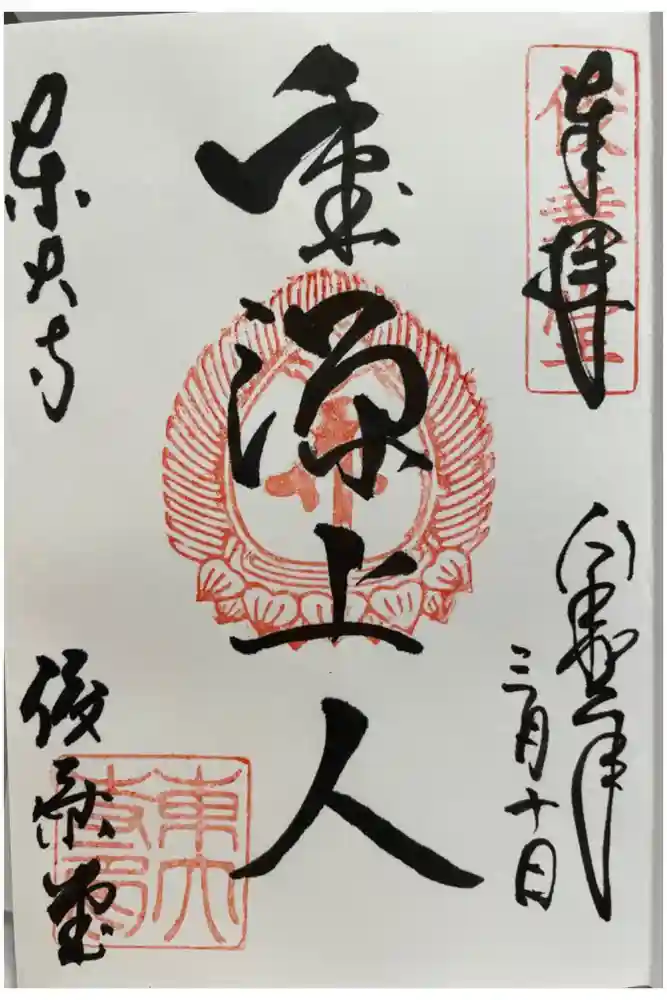 俊乗堂
奉拝
令和二年
三月十日
重源上人
東大寺
俊乗堂
東大